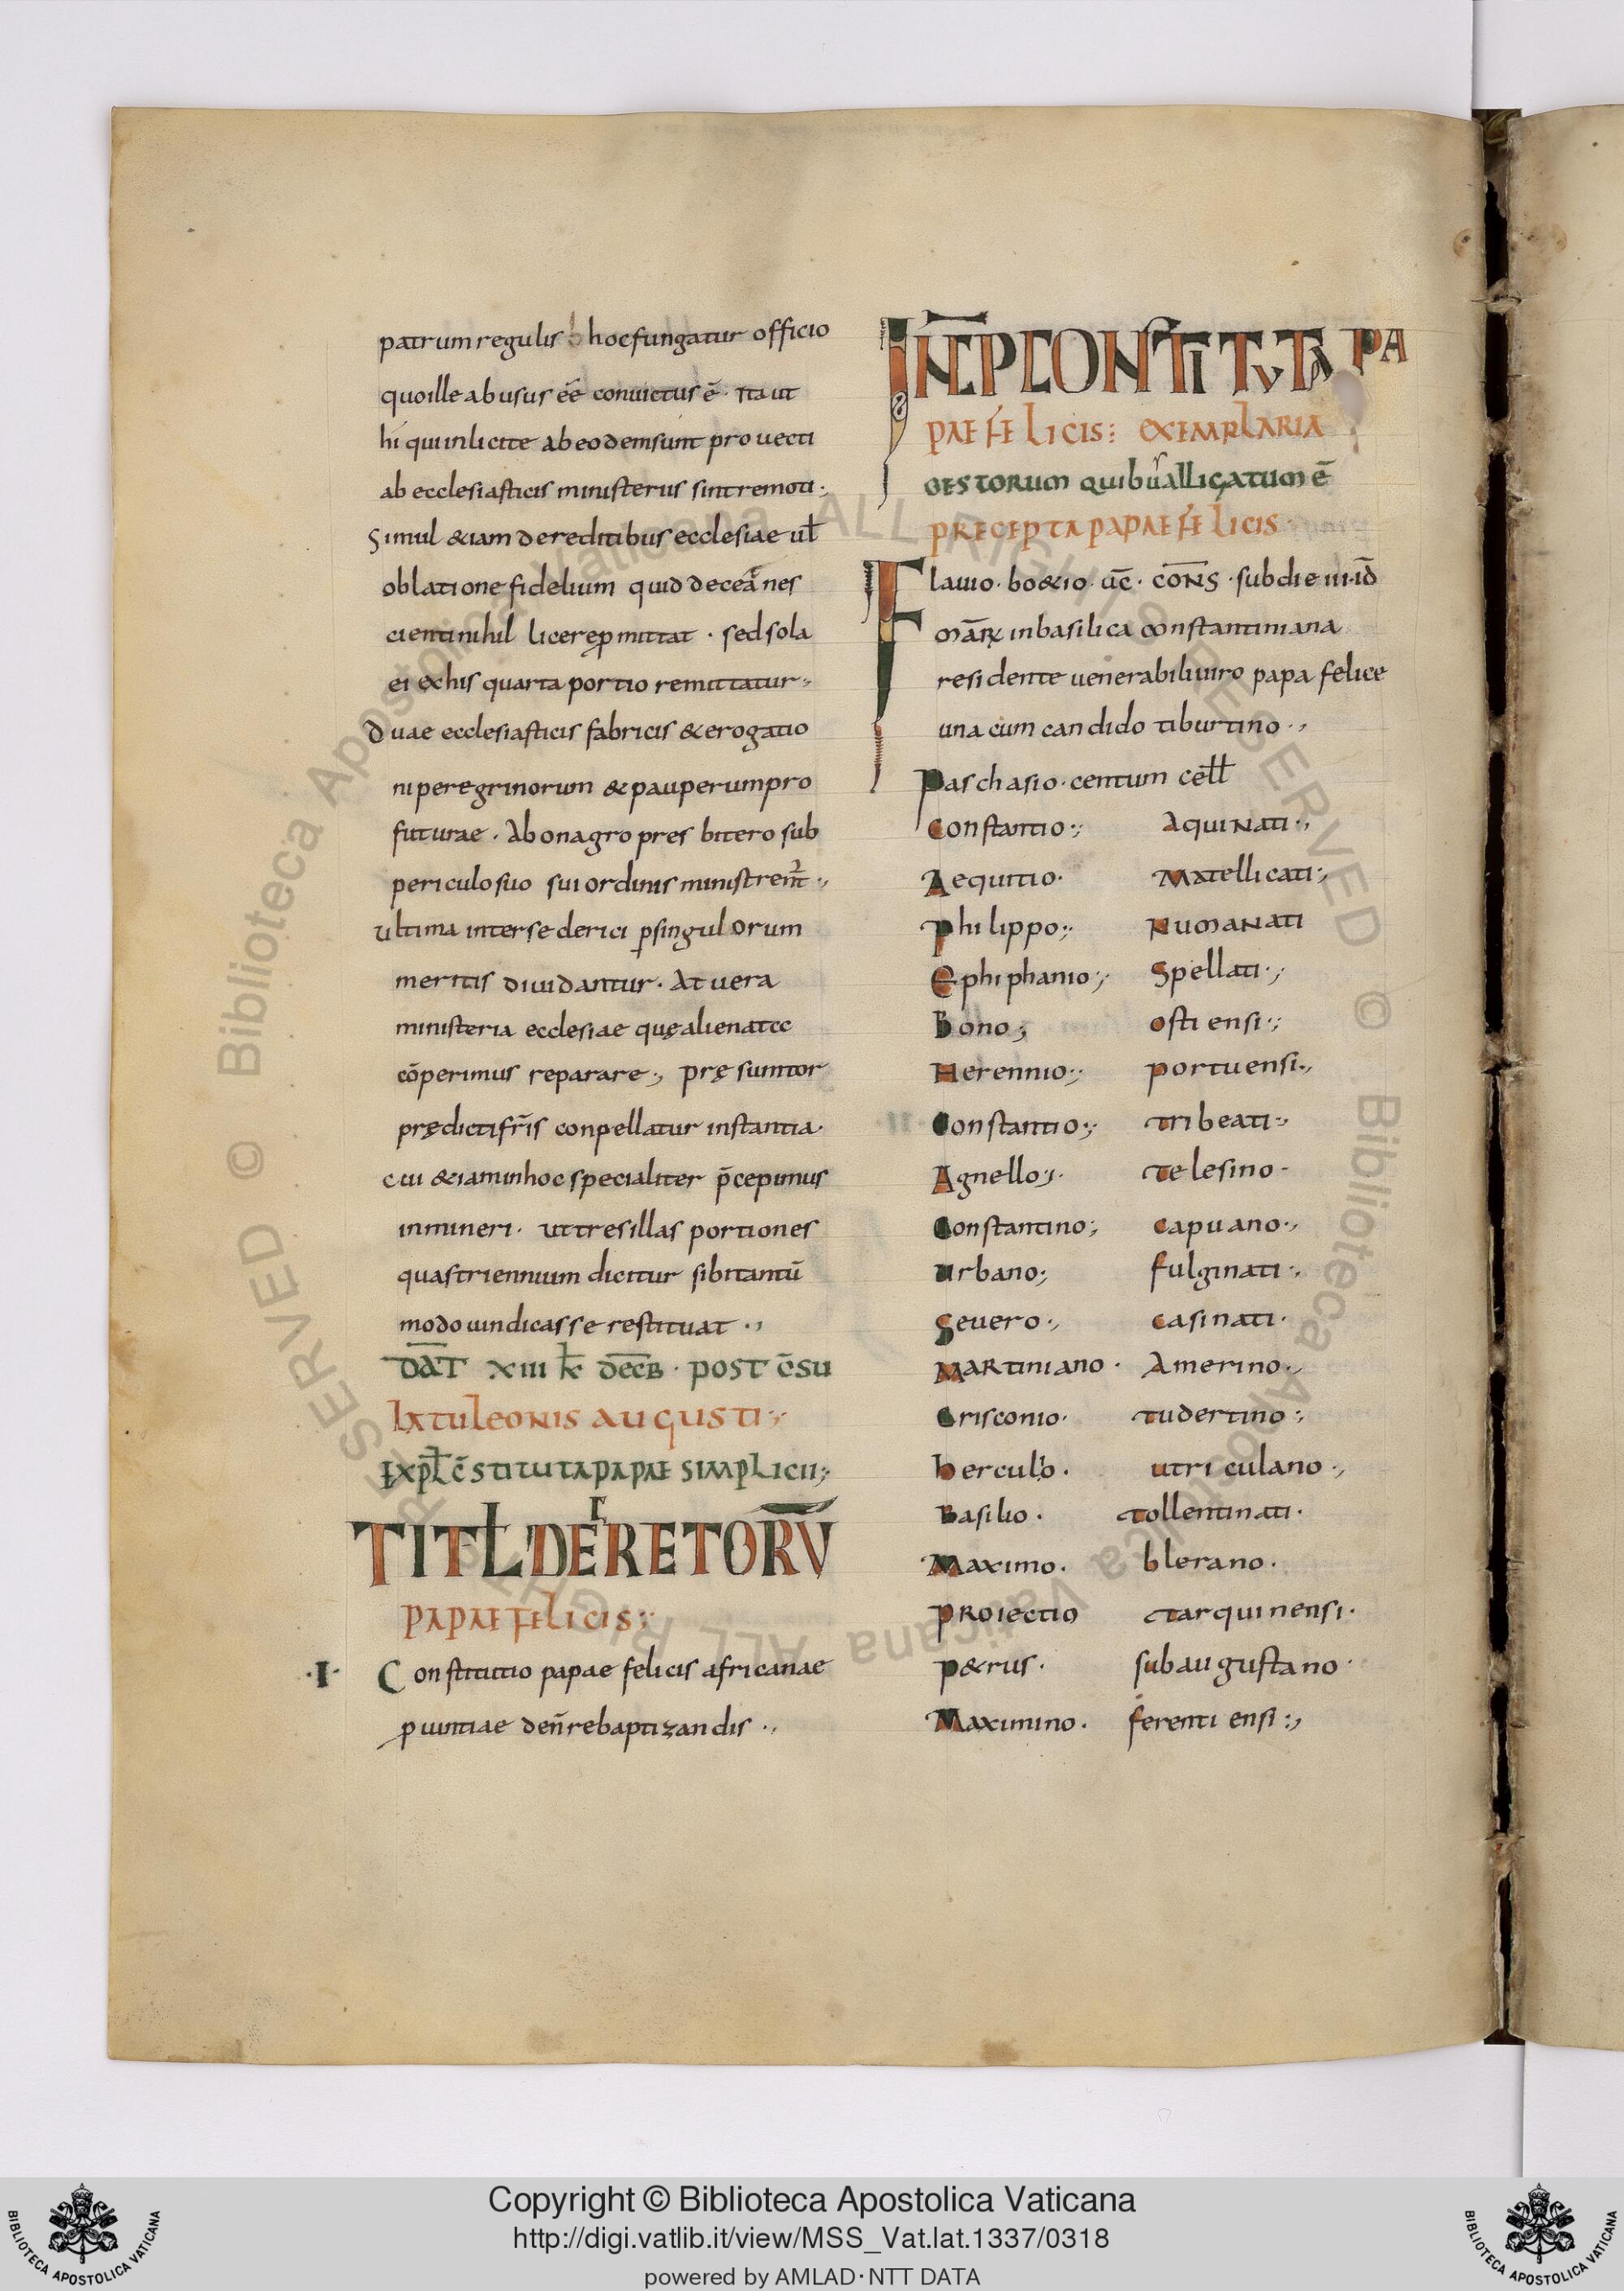 patrum regulis hoc fungatur officio
quo ille abusus eē convictus ē · Ita ut
hi qui inlicite ab eodem sunt provecti
ab ecclesiasticis ministeriis sint remoti ·,
Simul &iam de reditibus ecclesiae ul
oblatione fidelium quid deceat nes
cienti nihil licere pmittat · sed sola
ei ex his quarta portio remittatur ·,
Duae ecclesiasticis fabricis & erogatio
ni peregrinorum & pauperum pro
futurae · Ab onagro presbitero sub
periculo suo sui ordinis ministrent ·,
ultima inter se clerici p singulorum
meritis dividantur · At vera
ministeria ecclesiae quę alienata
cōperimus reparare ·, pręsumtor
prędicti fr̄is conpellatur instantia ·
cui &iam in hoc specialiter p̄cepimus
inmineri · ut tres illas portiones
quas triennium dicitur sibi tantū
modo vindicasse restituat ·,
DĀT XIII K̄ DECB̄ · POST C̄SU
LATU LEONIS AUGUSTI ·,
EXPL C̄STITUTA PAPAE SIMPLICII ;
TITL DECRETORŪ
PAPAE FELICIS ·,
· I · Constitutio papae felicis africanae
pvintiae de n̄ rebaptizandis ·,
INC̄P CONSTITUTA PA
PAE FELICIS : EXEMPLARIA
GESTORUM QUIBUS ALLIGATUM Ē
PRECEPTA PAPAE FELICIS
Flavio · bo&io · uc̄ · CONS̄ · sub die III · ID̄
MAR̄ in basilica constantiniana
residente venerabili viro papa felice
una cum candido tiburtino ·,
Paschasio · centum cell
Constantio ·, Aquinati ·,
Aequitio · Matellicati ·,
Philippo ·, Numanati
Ephiphanio ·, Spellati ·,
Bono ; ostiensi ·,
Herennio ·, portuensi ·,
Constantio ·, tribeati ·,
Agnello ·, telesino ·
Constantino ·, capuano ·,
Urbano ·, fulginati ·,
Severo ·, casinati ·
Martiniano · Amerino ·,
Crisconio · tudertino ·,
herculo · utriculano ·,
Basilio · tollentinati ·
Maximo · blerano ·
Proiectio tarquinensi ·
P&rus · subaugustano ·
Maximino · ferentiensi ·,
Copyright © Biblioteca Apostolica Vaticana
http://digi.vatlib.it/view/MSS_Vat.lat.1337/0318
powered by AMLAD·NTT DATA
BIBLIOTECA APOSTOLICA VATICANA
BIBLIOTECA APOSTOLICA VATICANA
© Biblioteca Apostolica Vaticana ALL RIGHTS RESERVED © Biblioteca Apostolica Vaticana ALL RIGHTS RESERVED